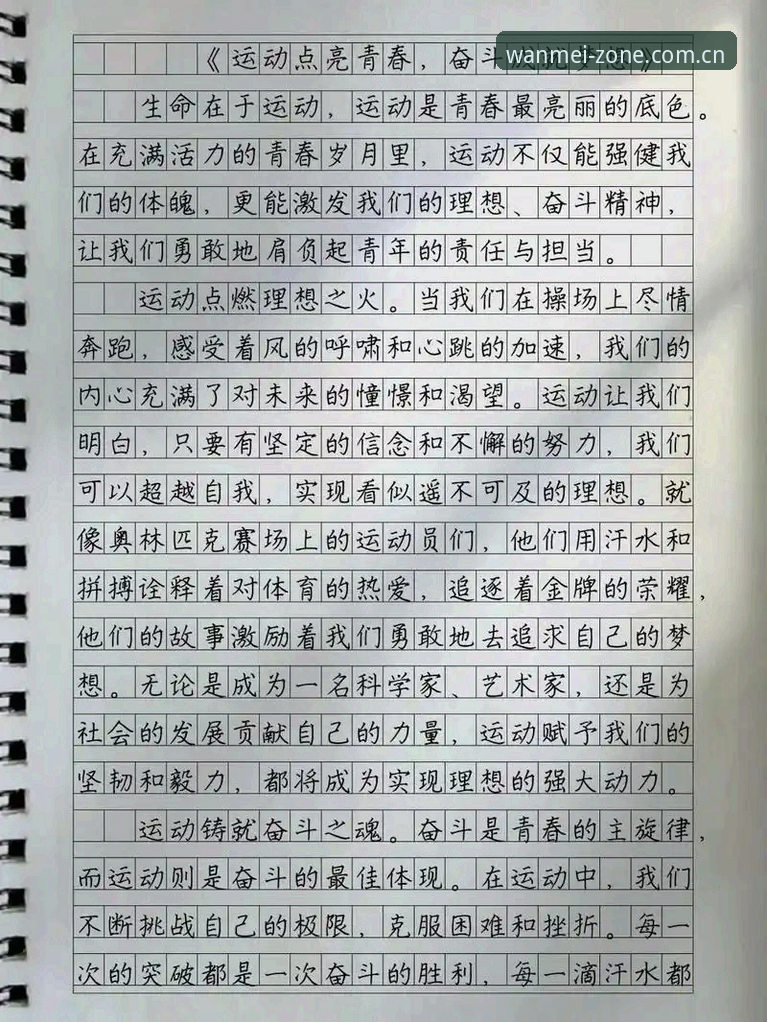 《运动点亮青春，奋斗
wanmei-zone.com.cn
生命在于运动，运动是青春最亮丽的底色。
在充满活力的青春岁月里，运动不仅能强健我
们的体魄，更能激发我们的理想、奋斗精神，
让我们勇敢地肩负起青年的责任与担当。
运动点燃理想之火。当我们在操场上尽情
奔跑，感受着风的呼啸和心跳的加速，我们的
内心充满了对未来的憧憬和渴望。运动让我们
明白，只要有坚定的信念和不懈的努力，我们
可以超越自我，实现看似遥不可及的理想。就
像奥林匹克赛场上的运动员们，他们用汗水和
拼搏诠释着对体育的热爱，追逐着金牌的荣耀，
他们的故事激励着我们勇敢地去追求自己的梦
想。无论是成为一名科学家、艺术家，还是为
社会的发展贡献自己的力量，运动赋予我们的
坚韧和毅力，都将成为实现理想的强大动力。
运动铸就奋斗之魂。奋斗是青春的主旋律，
而运动则是奋斗的最佳体现。在运动中，我们
不断挑战自己的极限，克服困难和挫折。每一
次的突破都是一次奋斗的胜利，每一滴汗水都